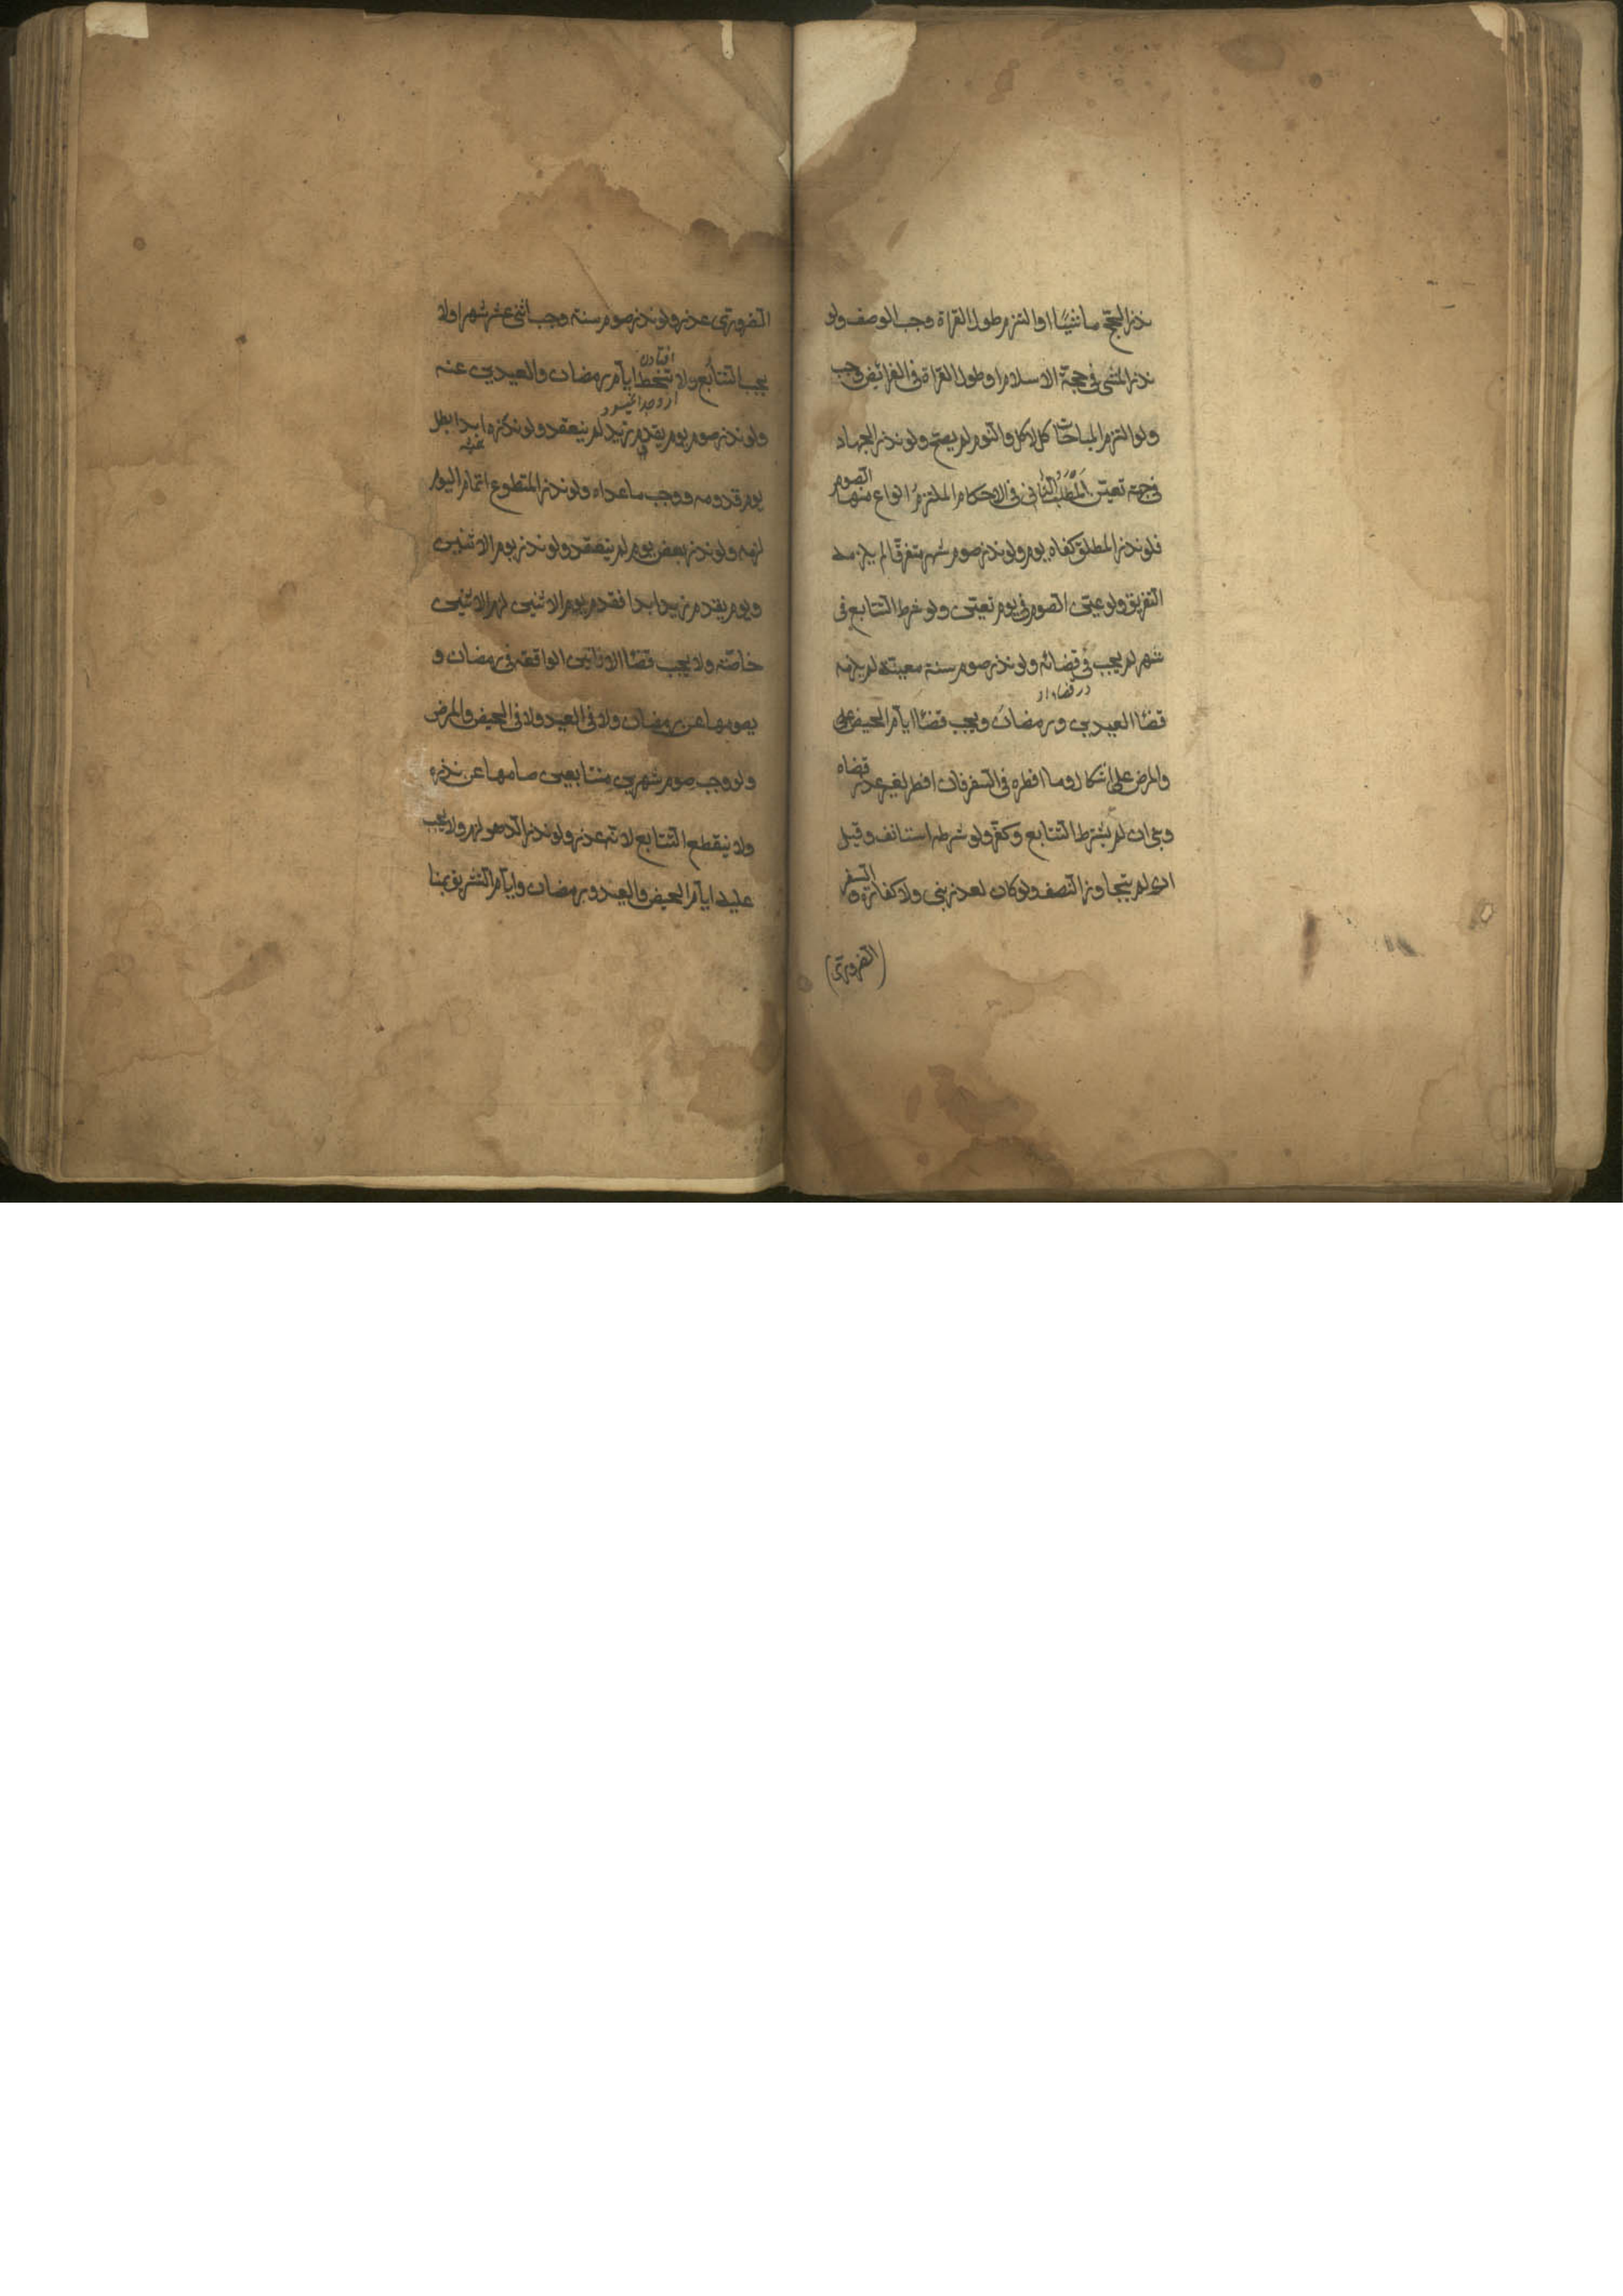 نذر الحجّ ماشيًا او التزم طول القراة وجب الوصف ولو
نذر المشى فى حجة الاسلام او طول القراة فى الفرائض وجب
ولو التزم المباحات كالاكل والنوم لم يصح ولو نذر الجهاد
فى جهة تعين المطلب الثانى فى الاحكام الملتزم انواع منها الصوم
فلو نذر المطلق كفاه يوم ولو نذر صوم شهر متفرقًا لم يلزمه
التفريق ولو عيّن الصوم فى يوم تعيّن ولو شرط التتابع فى
شهر لم يجب فى قضائه ولو نذر صوم سنة معينة لم يلزمه
در قضاء او
قضاا العيدين ورمضان ويجب قضاا ايام الحيض على
والمرض على اشكال وما افطره فى السفر فان افطر لغير عذر قضاه
وبنى ان لم يشترط التتابع وكفّر ولو شرطه استانف وقيل
ان لم يتجاوز النصف ولو كان لعذر بنى ولا كفارة والسفر
(الضرورى)
الضرورى عذر ولو نذر صوم سنة وجب اثنى عشر شهرا ولا
افتادن
يجب التتابع ولا تنحط ايام رمضان والعيدين عنه
ولو نذر صوم يوم يقدم زيد لم ينعقد ولو نذره ابدا بطل
يوم قدومه ووجب ما عداه ولو نذر المتطوع اتمام اليوم
لزمه ولو نذر بعض يوم لم ينعقد ولو نذر يوم الاثنين
ويوم يقدم زيد ابدا فقدم يوم الاثنين لزم الاثنين
خاصّة ولا يجب قضاا الاثانين الواقعة فى رمضان و
يصومها عن رمضان ولا فى العيد ولا فى الحيض والمرض
ولو وجب صوم شهرين متتابعين صامها عن نذره
ولا ينقطع التتابع لانه عذر ولو نذر الدهر لزم ولا يجب
عليه ايام الحيض والعيد ورمضان وايام التشريق بمنا